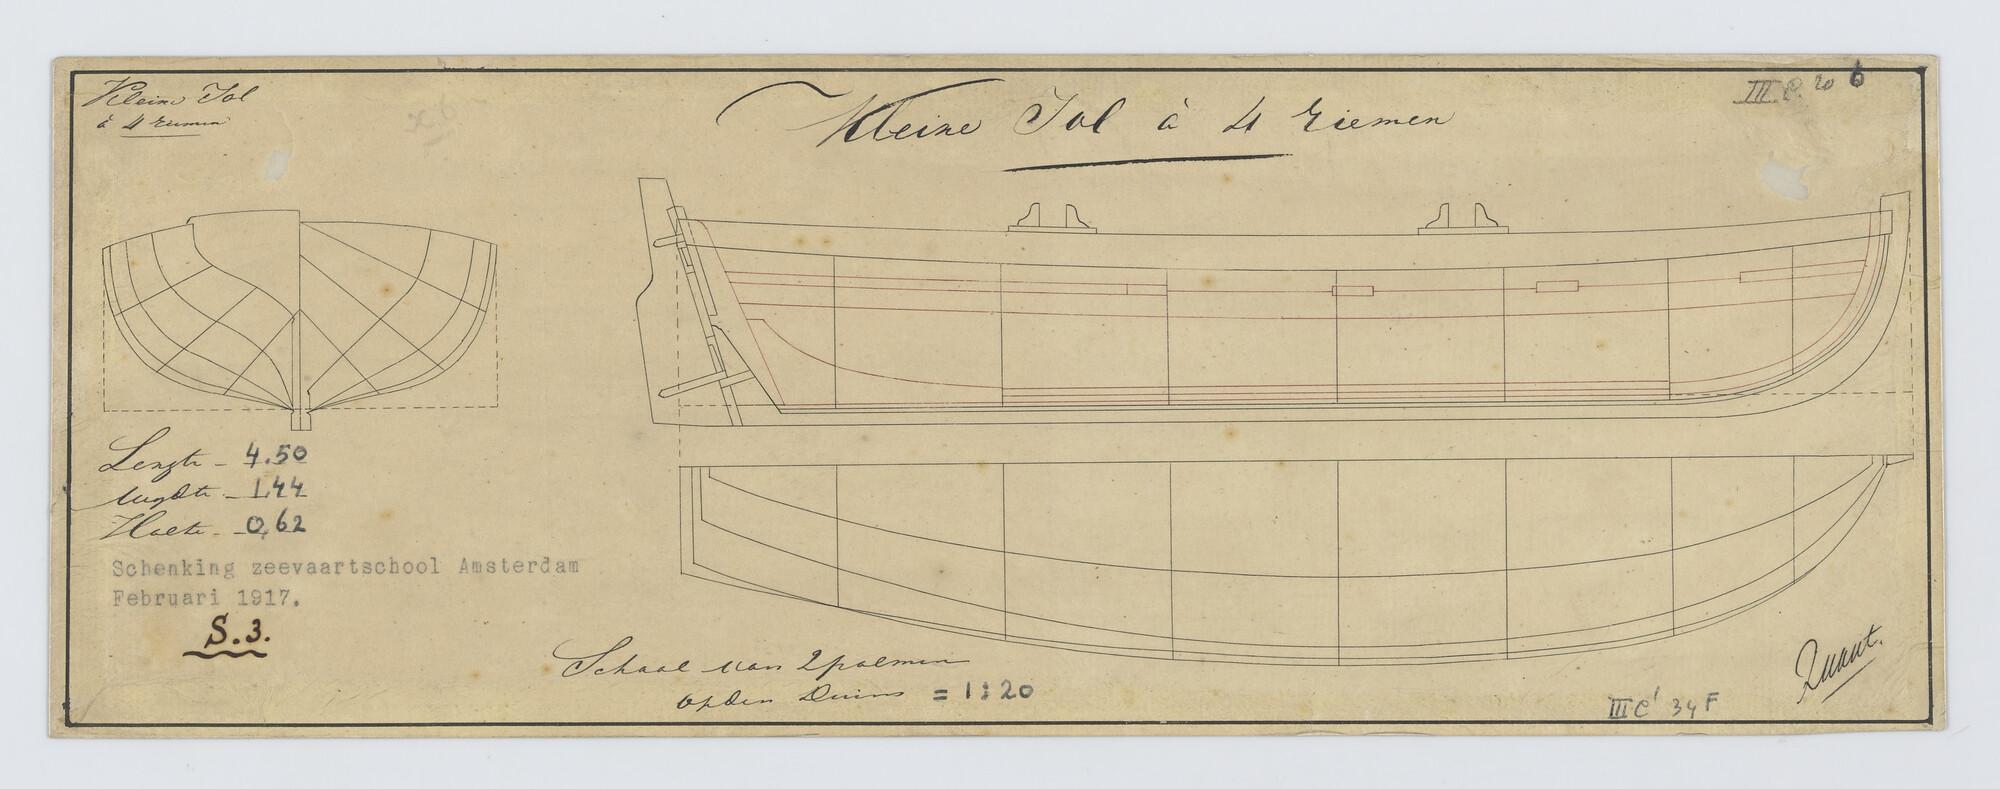 Kleine Jol
à 4 riemen
Kleine Jol à 4 riemen
III C. 20 6
Lengte - 4.50
Wydte - 1,44
Holte - 0,62
Schenking zeevaartschool Amsterdam
Februari 1917.
S.3.
Schaal van 2 palmen
op den Duim = 1:20
Quant.
III C' 34 F